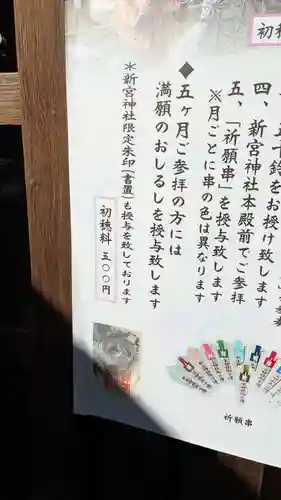 初穂
五十鈴をお授け致します
四、新宮神社本殿前でご参拝
五、「祈願串」を授与致します
※月ごとに串の色は異なります
◆五ヶ月ご参拝の方には
満願のおしるしを授与致します
＊新宮神社限定朱印(書置)も授与を致しております
初穂料 五〇〇円
祈願串